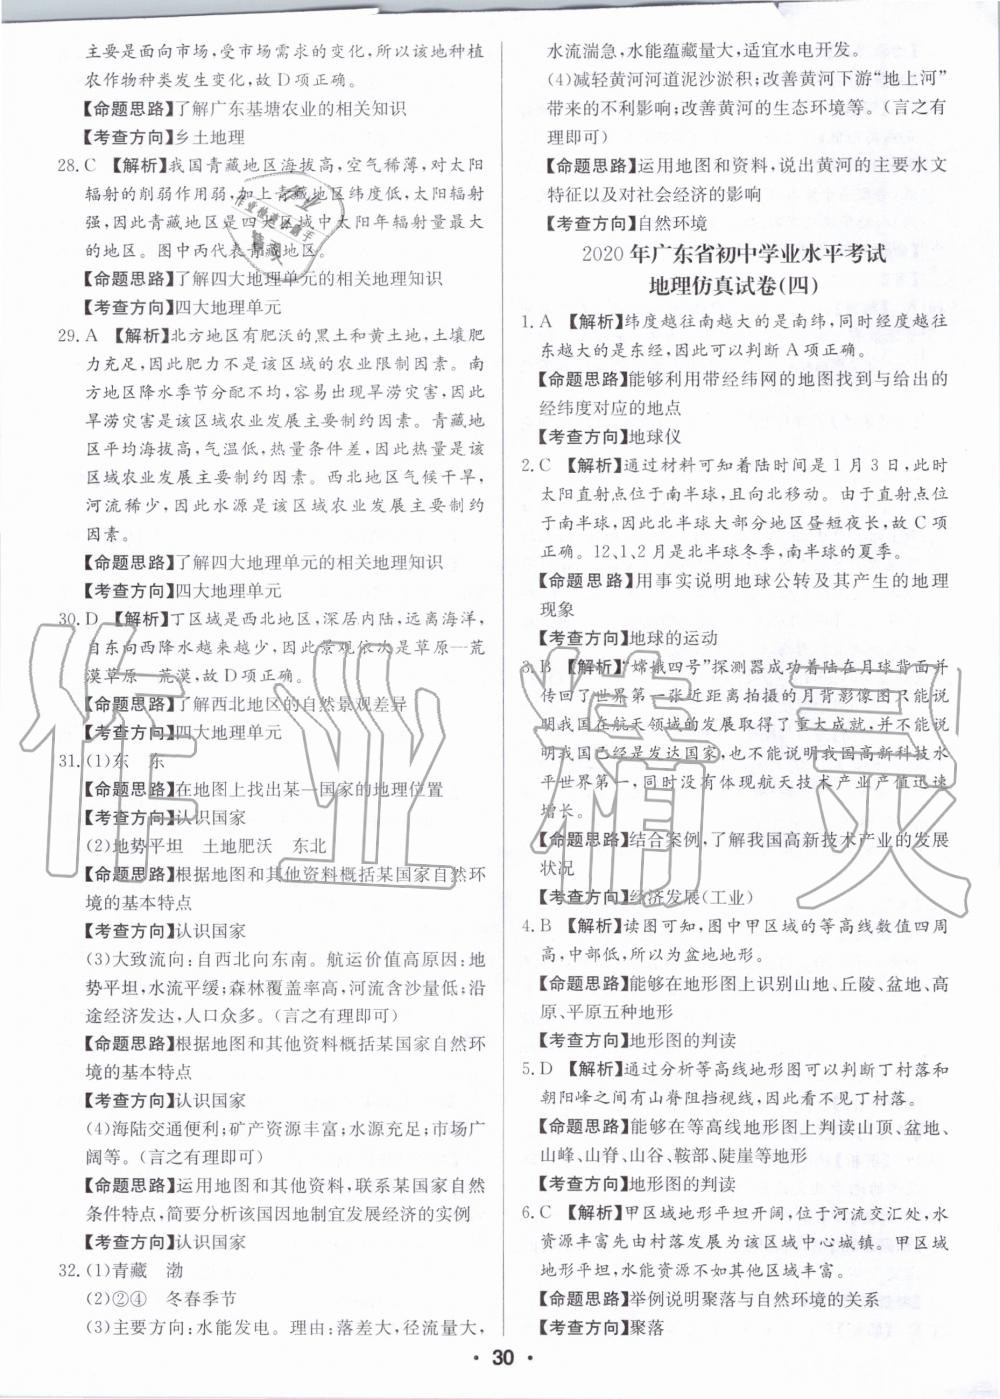 主要是面向市场,受市场需求的变化,所以该地种植
农作物种类发生变化,故D项正确。
【命题思路】了解广东基塘农业的相关知识
【考查方向】乡土地理
28.C 【解析】我国青藏地区海拔高,空气稀薄,对太阳
辐射的削弱作用弱,加上青藏地区纬度低,太阳辐射
强,因此青藏地区是四大区域中太阳年辐射量最大
的地区。图中丙代表青藏地区。
【命题思路】了解四大地理单元的相关地理知识
【考查方向】四大地理单元
29.A 【解析】北方地区有肥沃的黑土和黄土地,土壤肥
力充足,因此肥力不是该区域的农业限制因素。南
方地区降水季节分配不均,容易出现旱涝灾害,因此
旱涝灾害是该区域农业发展主要制约因素。青藏地
区平均海拔高,气温低,热量条件差,因此热量是该
区域农业发展主要制约因素。西北地区气候干旱,
河流稀少,因此水源是该区域农业发展主要制约
因素。
【命题思路】了解四大地理单元的相关地理知识
【考查方向】四大地理单元
30.D 【解析】丁区域是西北地区,深居内陆,远离海洋,
自东向西降水越来越少,因此景观依次是草原—荒
漠草原—荒漠,故D项正确。
【命题思路】了解西北地区的自然景观差异
【考查方向】四大地理单元
31.(1)东 东
【命题思路】在地图上找出某一国家的地理位置
【考查方向】认识国家
(2)地势平坦 土地肥沃 东北
【命题思路】根据地图和其他资料概括某国家自然环
境的基本特点
【考查方向】认识国家
(3)大致流向:自西北向东南。航运价值高原因:地
势平坦,水流平缓;森林覆盖率高,河流含沙量低;沿
途经济发达,人口众多。(言之有理即可)
【命题思路】根据地图和其他资料概括某国家自然环
境的基本特点
【考查方向】认识国家
(4)海陆交通便利;矿产资源丰富;水源充足;市场广
阔等。(言之有理即可)
【命题思路】运用地图和其他资料,联系某国家自然
条件特点,简要分析该国因地制宜发展经济的实例
【考查方向】认识国家
32.(1)青藏 渤
(2)②④ 冬春季节
(3)主要方向:水能发电。理由:落差大,径流量大,
水流湍急,水能蕴藏量大,适宜水电开发。
(4)减轻黄河河道泥沙淤积;改善黄河下游“地上河”
带来的不利影响;改善黄河的生态环境等。(言之有
理即可)
【命题思路】运用地图和资料,说出黄河的主要水文
特征以及对社会经济的影响
【考查方向】自然环境
2020年广东省初中学业水平考试
地理仿真试卷(四)
1.A 【解析】纬度越往南越大的是南纬,同时经度越往
东越大的是东经,因此可以判断A项正确。
【命题思路】能够利用带经纬网的地图找到与给出的
经纬度对应的地点
【考查方向】地球仪
2.C 【解析】通过材料可知着陆时间是1月3日,此时
太阳直射点位于南半球,且向北移动。由于直射点位
于南半球,因此北半球大部分地区昼短夜长,故C项
正确。12、1、2月是北半球冬季,南半球的夏季。
【命题思路】用事实说明地球公转及其产生的地理
现象
【考查方向】地球的运动
3.B 【解析】“嫦娥四号”探测器成功着陆在月球背面并
传回了世界第一张近距离拍摄的月背影像图只能说
明我国在航天领域的发展取得了重大成就,并不能说
明我国已经是发达国家,也不能说明我国高新科技水
平世界第一,同时没有体现航天技术产业产值迅速
增长。
【命题思路】结合案例,了解我国高新技术产业的发展
状况
【考查方向】经济发展(工业)
4.B 【解析】读图可知,图中甲区域的等高线数值四周
高,中部低,所以为盆地地形。
【命题思路】能够在地形图上识别山地、丘陵、盆地、高
原、平原五种地形
【考查方向】地形图的判读
5.D 【解析】通过分析等高线地形图可以判断丁村落和
朝阳峰之间有山脊阻挡视线,因此看不见丁村落。
【命题思路】能够在等高线地形图上判读山顶、盆地、
山峰、山脊、山谷、鞍部、陡崖等地形
【考查方向】地形图的判读
6.C 【解析】甲区域地形平坦开阔,位于河流交汇处,水
资源丰富先由村落发展为该区域中心城镇。甲区域
地形平坦,水能资源不如其他区域丰富。
【命题思路】举例说明聚落与自然环境的关系
【考查方向】聚落
· 30 ·
作业精灵